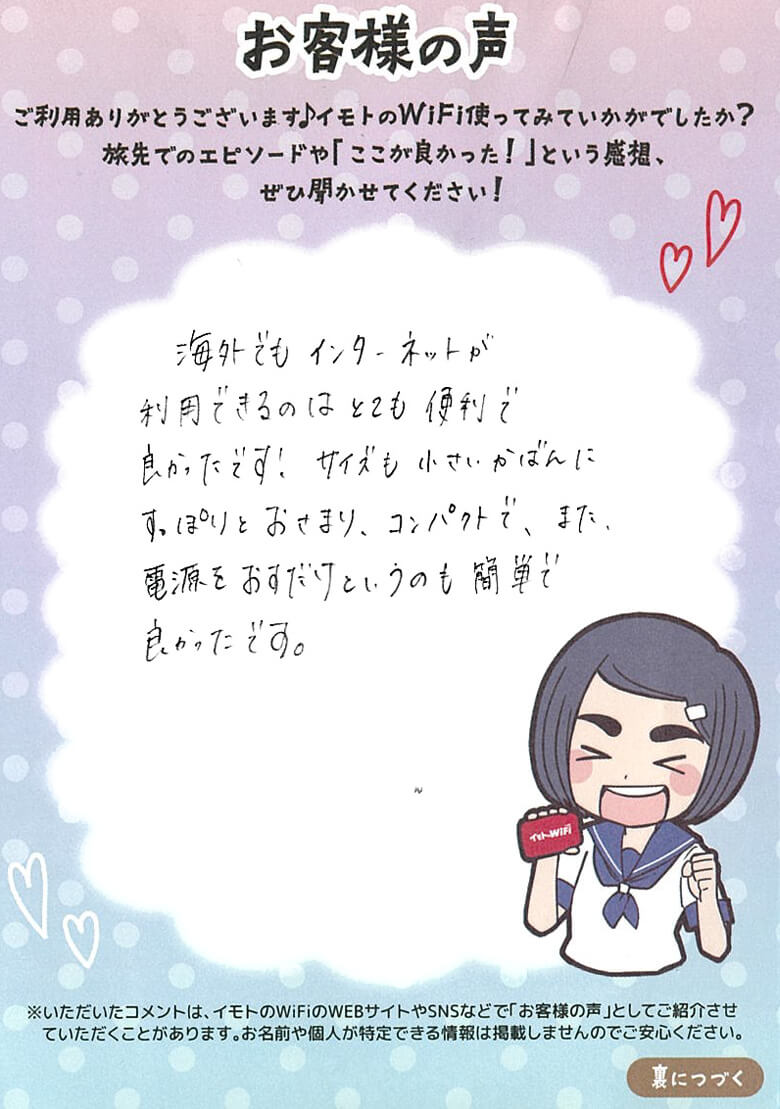 お客様の声
ご利用ありがとうございます♪イモトのWiFi使ってみていかがでしたか？
旅先でのエピソードや「ここが良かった！」という感想、
ぜひ聞かせてください！
海外でもインターネットが
利用できるのはとても便利で
良かったです! サイズも小さいかばんに
すっぽりとおさまり、コンパクトで、また、
電源をおすだけというのも簡単で
良かったです。
イモトのWiFi
※いただいたコメントは、イモトのWiFiのWEBサイトやSNSなどで「お客様の声」としてご紹介させ
ていただくことがあります。お名前や個人が特定できる情報は掲載しませんのでご安心ください。
裏につづく